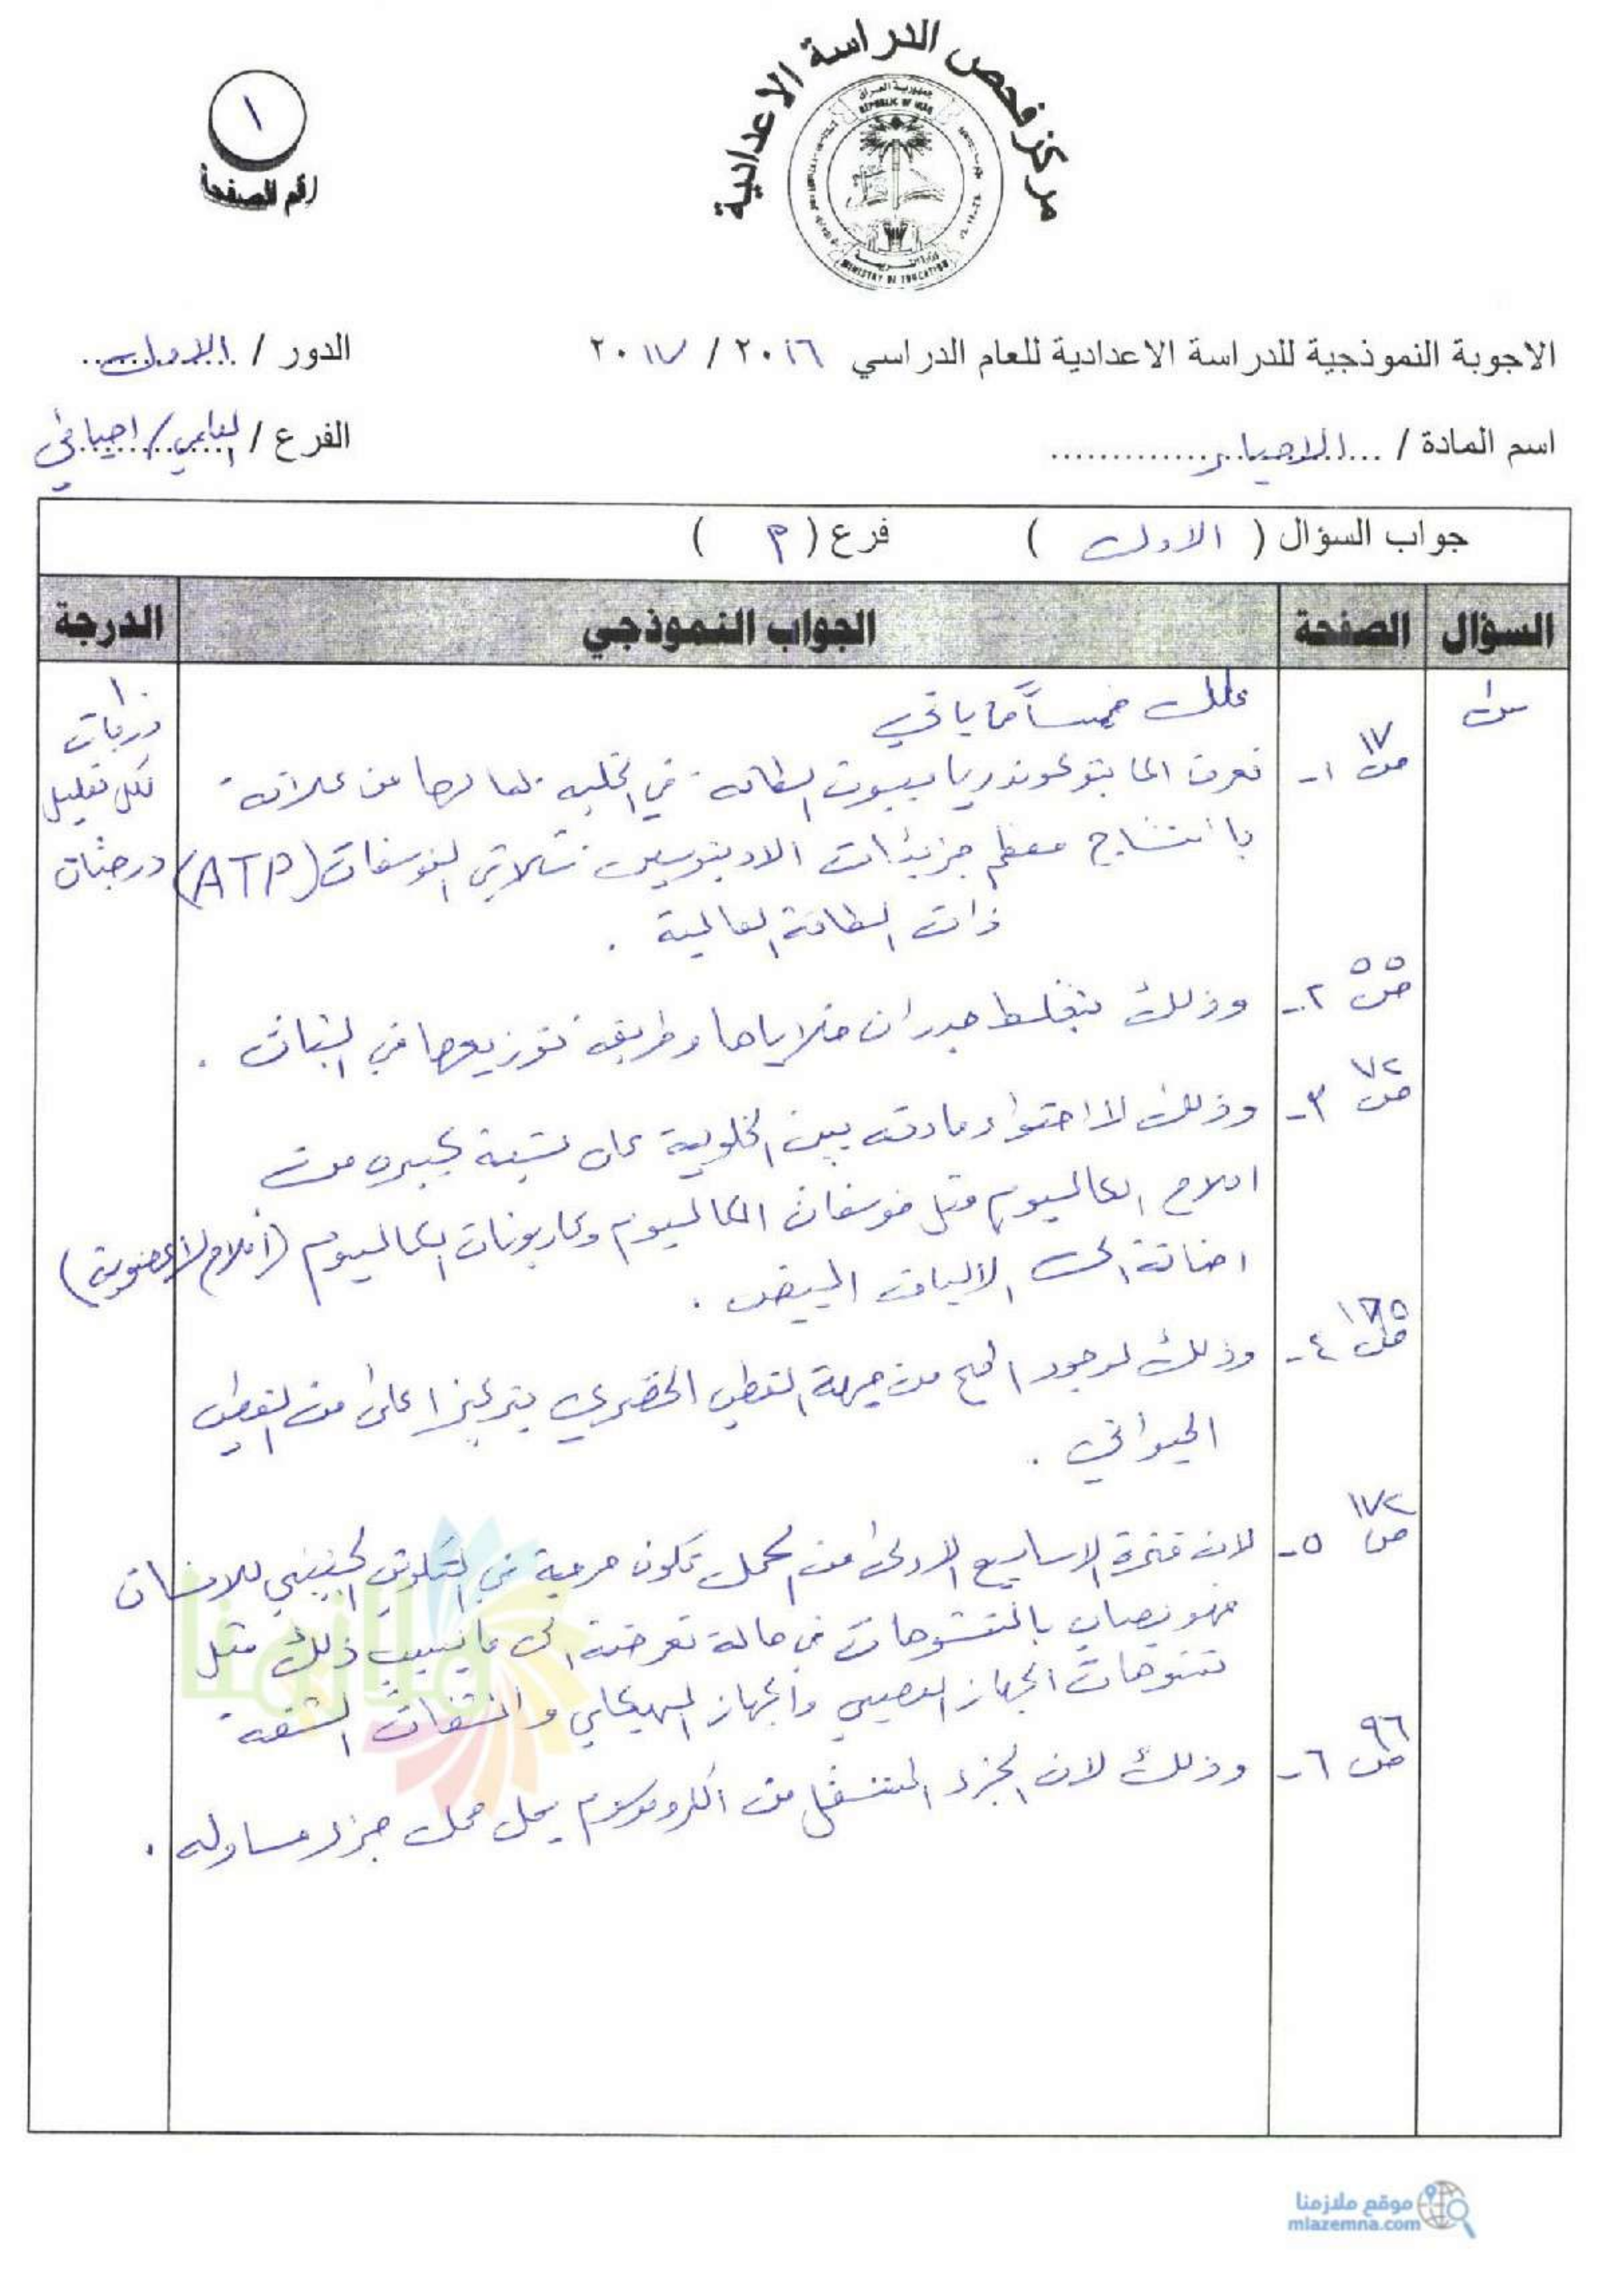 مركز فحص الدراسة الاعدادية
جمهورية العراق
REPUBLIC OF IRAQ
وزارة التربية
MINISTRY OF EDUCATION
١
رقم الصفحة
الاجوبة النموذجية للدراسة الاعدادية للعام الدراسي ٢٠١٦ / ٢٠١٧
الدور / الاول
اسم المادة / الاحياء
الفرع / العلمي / احيائي
جواب السؤال ( الاول ) فرع ( م )
السؤال الصفحة الجواب النموذجي الدرجة
س١ علل خمساً مما ياتي ١٠
درجات
لكل تعليل
درجتان
ص ١٧ ١- تعرف المايتوكوندريا ببيوت الطاقة في الخلية لما لها من علاقة
بانتاج معظم جزيئات الادينوسين ثلاثي الفوسفات (ATP)
ذات الطاقة العالية .
ص ٥٥ ٢- وذلك لتغلظ جدران خلاياها وطريقة توزيعها في النبات .
ص ٧٢ ٣- وذلك لاحتواء مادته بين الخلوية على نسبة كبيره من
املاح الكالسيوم مثل فوسفات الكالسيوم وكاربونات الكالسيوم (أملاح لاعضوية)
اضافة الى الالياف البيض .
ص ١٦٥ ٤- وذلك لوجود المح من جهة القطب الخضري بتركيز اعلى من القطب
الحيواني .
ص ١٧٢ ٥- لان فترة الاسابيع الاولى من الحمل تكون حرجة في التكوين الجنيني للانسان
فهو يصاب بالتشوهات في حالة تعرضه الى مايسبب ذلك مثل
تشوهات الجهاز العصبي والجهاز الهيكلي وانشقاق الشفة
ص ٩٦ ٦- وذلك لان الجزء المنتقل من الكروموسوم يحل محل جزء مساو له .
ملازمنا
موقع ملازمنا
mlazemna.com